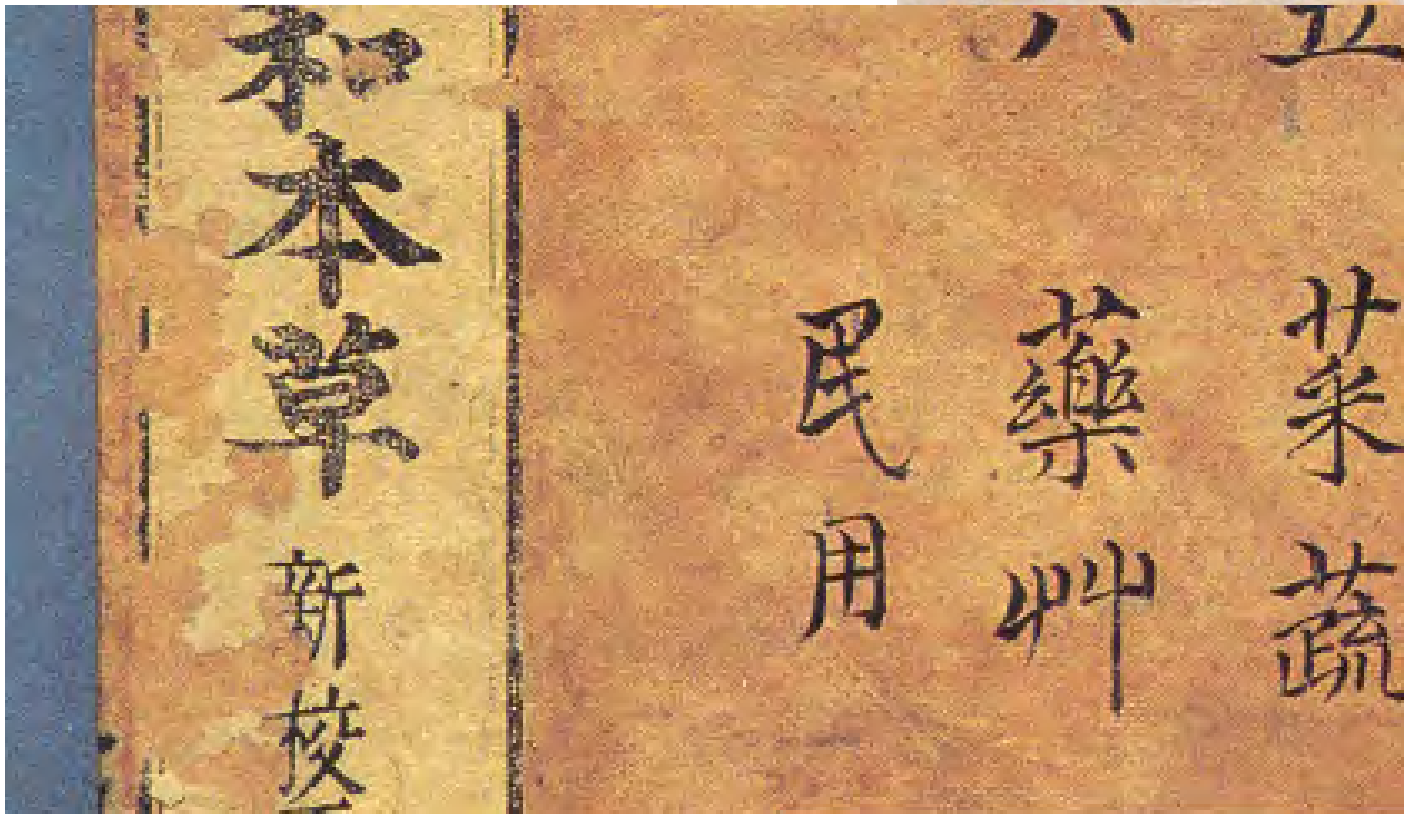 五 菜蔬
六 藥艸
民用
和本草 新校